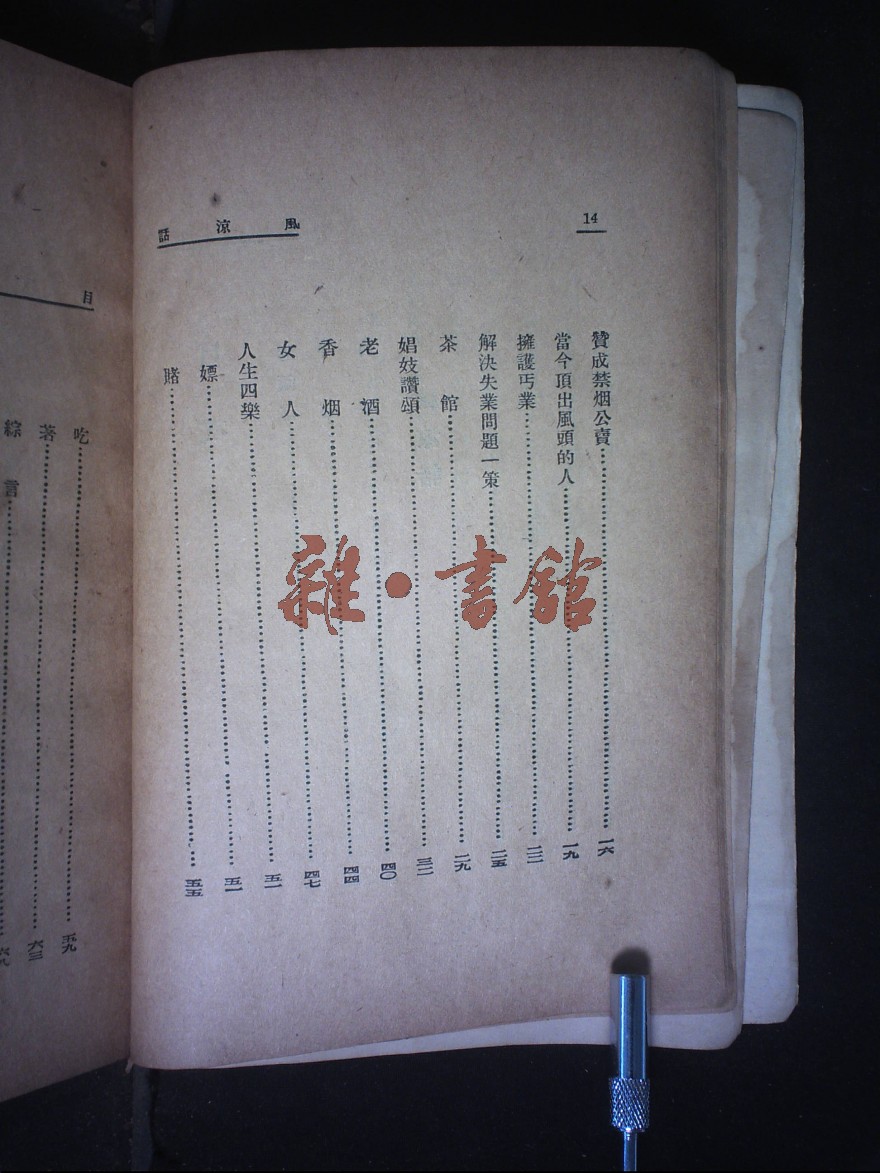 14
風涼話
贊成禁烟公賣……一六
當今頂出風頭的人……一九
擁護丐業……二二
解決失業問題一策……二五
茶館……二九
娼妓讚頌……三二
老酒……四〇
香烟……四四
女人……四七
人生四樂……五一
嫖……五一
賭……五五
目
吃……五九
著……六三
綜言……
雜·書館